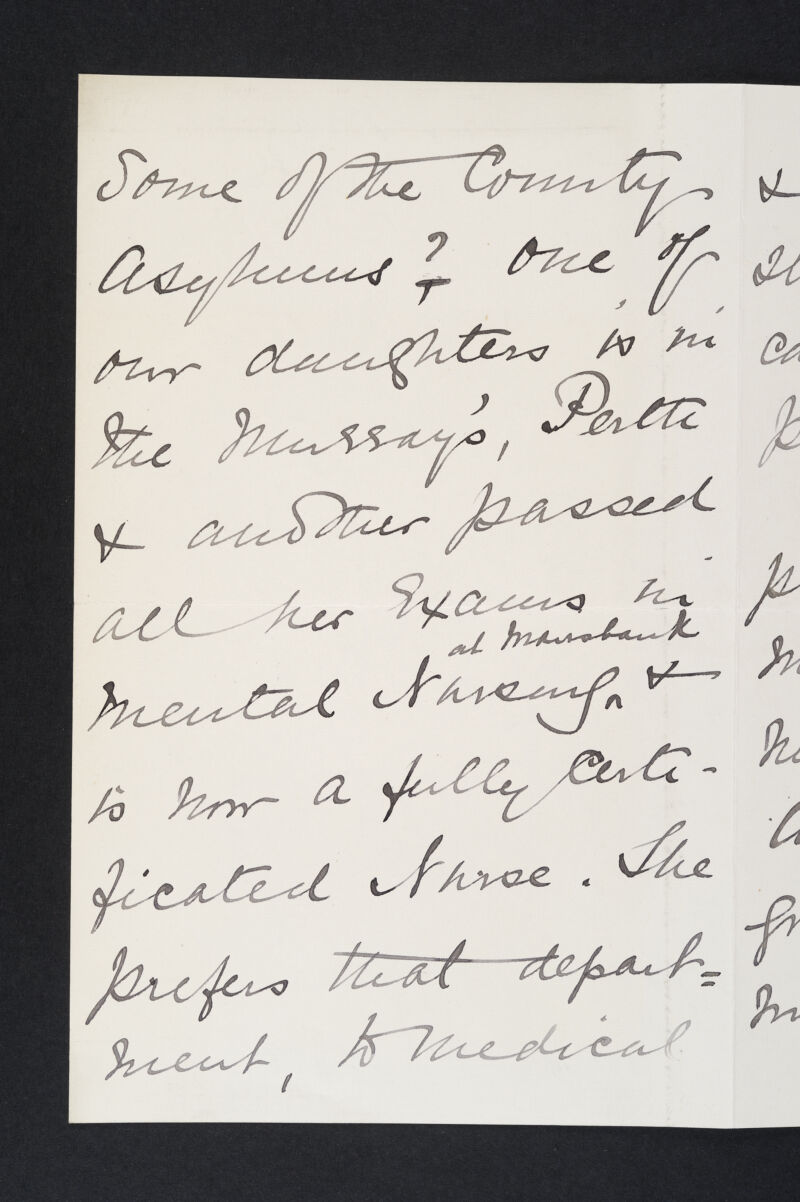 Some of the County
Asylums? One of
our daughters is in
the Murray's, Perth
& another passed
all her Exams in
at Mavisbank
Mental Nursing &
is now a fully Certi-
ficated Nurse. She
prefers that depart=
ment, to Medical
&